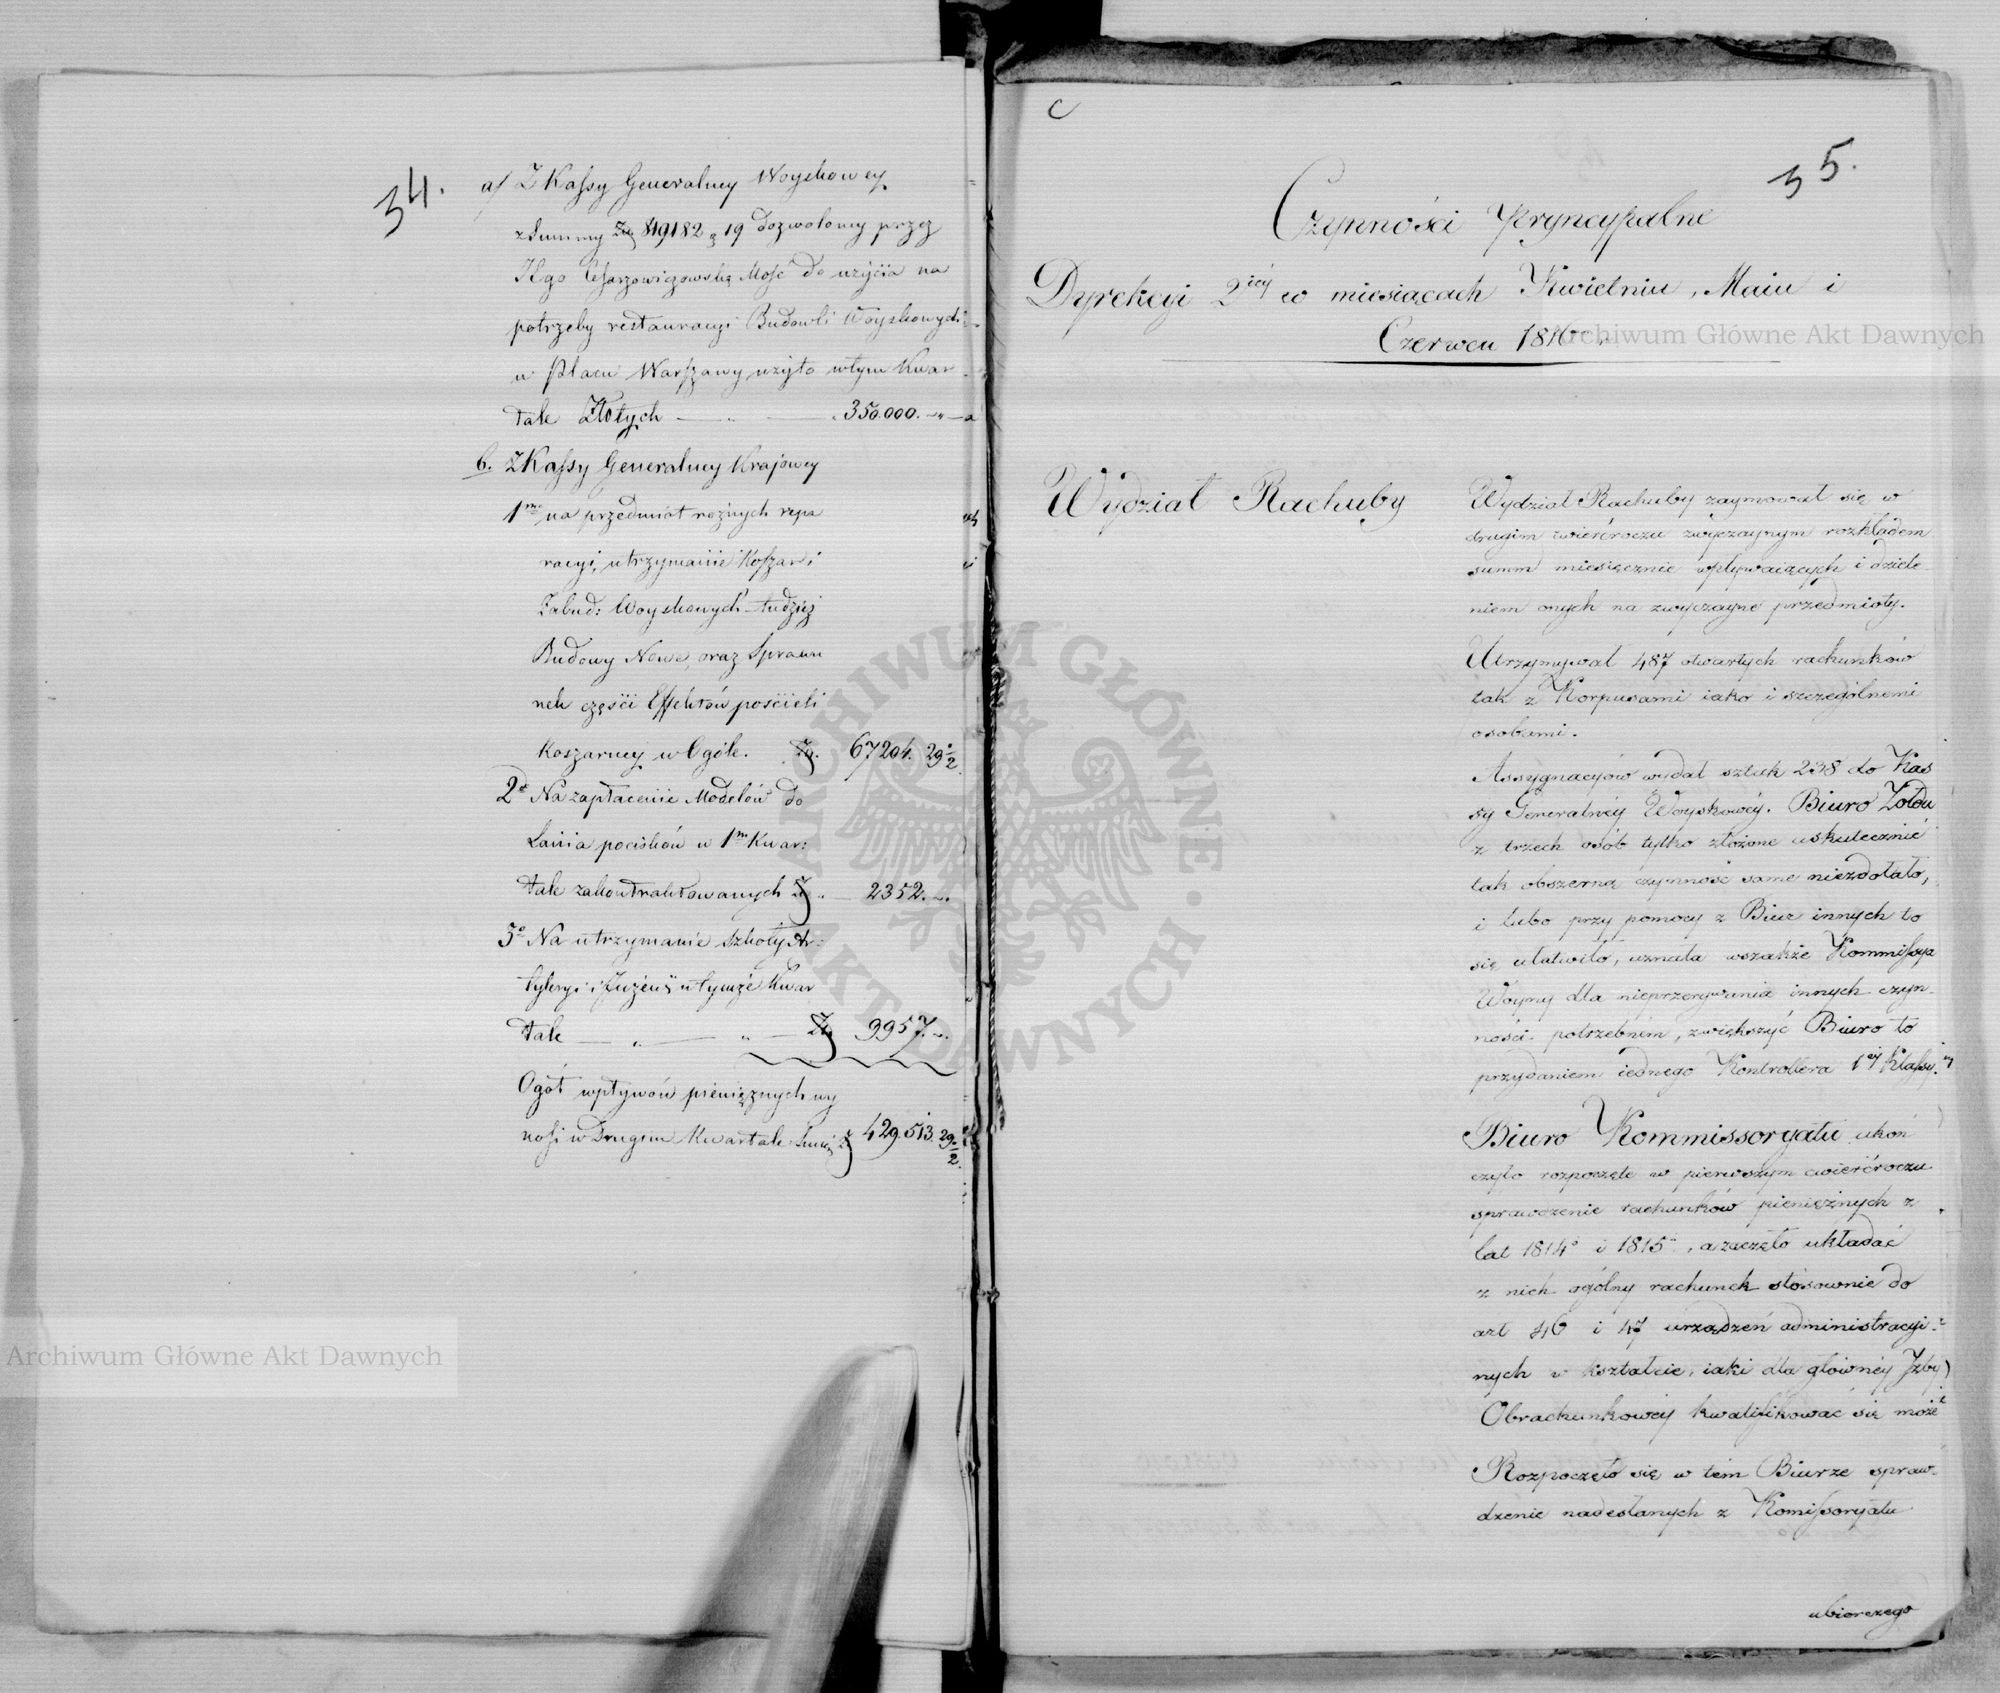 34.
a/ Z Kassy Generalney Woyskowey
z Summy Zło 819182 g 19 dozwoloney przez
JEgo Cesarzowiczowską Mość do użycia na
potrzeby restauracyi Budowli Woyskowych
w Placu Warszawy użyto w tym Kwar
tale Złotych — „ — 350.000. — „ —
b. Z Kassy Generalney Krajowey
1mo na przedmiot rożnych repa
racyi, utrzymanie Koszar i
Zabud: Woyskowych tudzież
Budowy Nowe, oraz Sprawu
nek części Effektów pościeli
Koszarney w Ogóle. Zł. 67204. 29 1/2
2do Na zapłacenie Modelów do
Lania pocisków w 1m Kwar:
tale zakontraktowanych Zł „ — 2352. „.
3o Na utrzymanie Szkoły Ar:
tyleryi i Inżen: w tymże Kwar
tale — „ — „ — Zł 9957. „.
Ogół wpływów pieniężnych wy
nosi w Drugim Kwartale Summę Zł 429.513. 29 1/2
C
35.
Czynności Pryncypalne
Dyrekcyi 2iey w miesiącach Kwietniu, Maiu i
Czerwcu 1816 r.
Wydział Rachuby
Wydział Rachuby zaymował się w
drugim ćwierćroczu zwyczaynym rozkładem
summ miesięcznie wpływaiących i dziele
niem onych na zwyczayne przedmioty.
Utrzymywał 487 otwartych rachunków
tak z Korpusami iako i szczególnemi
osobami.
Assygnacyów wydał sztuk 238 do Kas
sy Generalnéy Woyskowéy. Biuro Żołdu
z trzech osób tylko złożone uskutecznić
tak obszerną czynność same niezdołało,
i lubo przy pomocy z Biur innych to
się ułatwiło, uznała wszakże Kommissya
Woyny dla nieprzerywania innych czyn-
ności potrzebném, zwiększyć Biuro to
przydaniem iednego Kontrollera 1éy Klassy.
Biuro Kommissoryatu ukoń
czyło rozpoczęte w pierwszym ćwierćroczu
sprawdzenie rachunków pieniężnych z
lat 1814o i 1815o, a zaczęło układać
z nich ogólny rachunek stósownie do
art 46 i 47 urządzeń administracyi-
nych w kształcie, iaki dla głównéy Jzby
Obrachunkowéy kwalifikować się może
Rozpoczęło się w tém Biurze spraw-
dzenie nadesłanych z Komissoryatu
ubiorczego
Archiwum Główne Akt Dawnych
Archiwum Główne Akt Dawnych
ARCHIWUM GŁÓWNE AKT DAWNYCH